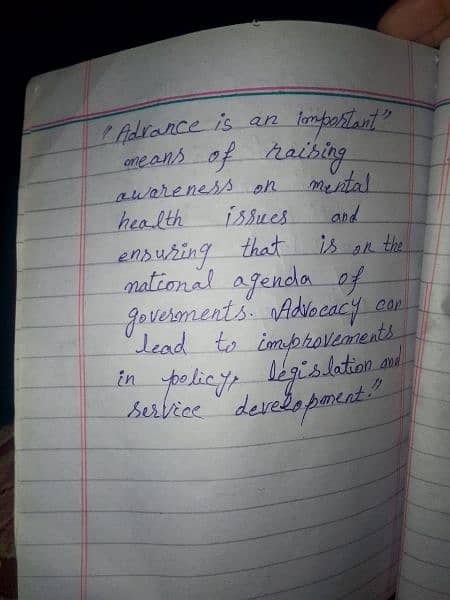 "Advance is an important"
means of raising
awareness on mental
health issues and
ensuring that is on the
national agenda of
goverments. Advocacy can
lead to improvements
in policy, legislation and
service development."